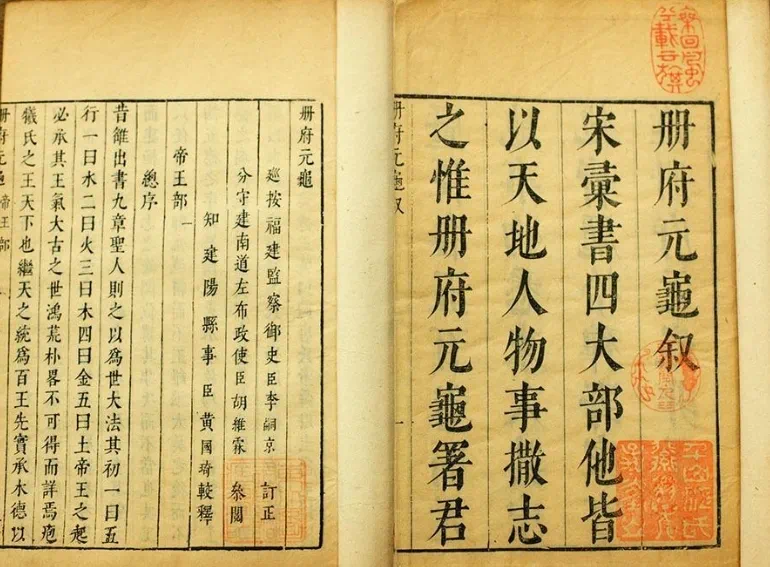 册府元龜叙
宋彙書四大部他皆
以天地人物事撒志
之惟册府元龜署君
册府元龜叙 一
册府元龜
巡按福建監察御史臣李嗣京 訂正
分守建南道左布政使臣胡維霖 叅閱
知建陽縣事臣黃國琦較釋
帝王部 一
總序
昔雒出書九章聖人則之以爲世大法其初一曰五
行一曰水二曰火三曰木四曰金五曰土帝王之起
必承其王氣大古之世鴻荒朴畧不可得而詳焉庖
犧氏之王天下也繼天之統爲百王先實承木德以
册府元龜 帝王部